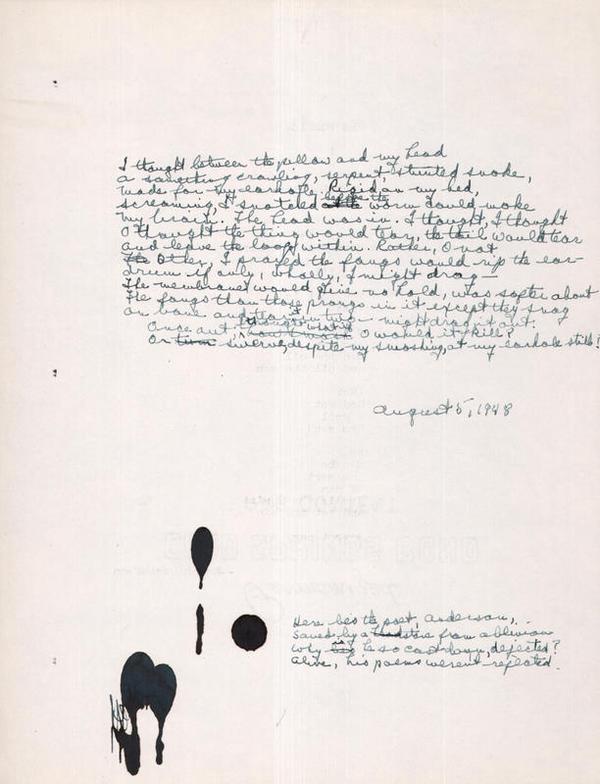 I thought between the pillow and my head
a something crawling, serpent, stunted snake,
made for my earhole. Rigid on my bed,
screaming, I snatched worm could make
my brain. The head was in. I thought, I thought
O thought the thing would tear, the tail would tear
and leave the loop within. Rather, O not
the other, I prayed the fangs would rip the ear-
drum if only, wholly, I might drag —
The membranes would give no hold, was softer about
the fangs than those prongs in it except they snag
on bone and tear in two — might drag it out.
Once out O would it kill?
Or swerve, despite my smashing, at my earhole still!
August 5, 1948
Here lies the poet, Anderson,
saved by a headstone from oblivion
Why is he so cast down, dejected?
Alive, his poems weren't rejected.